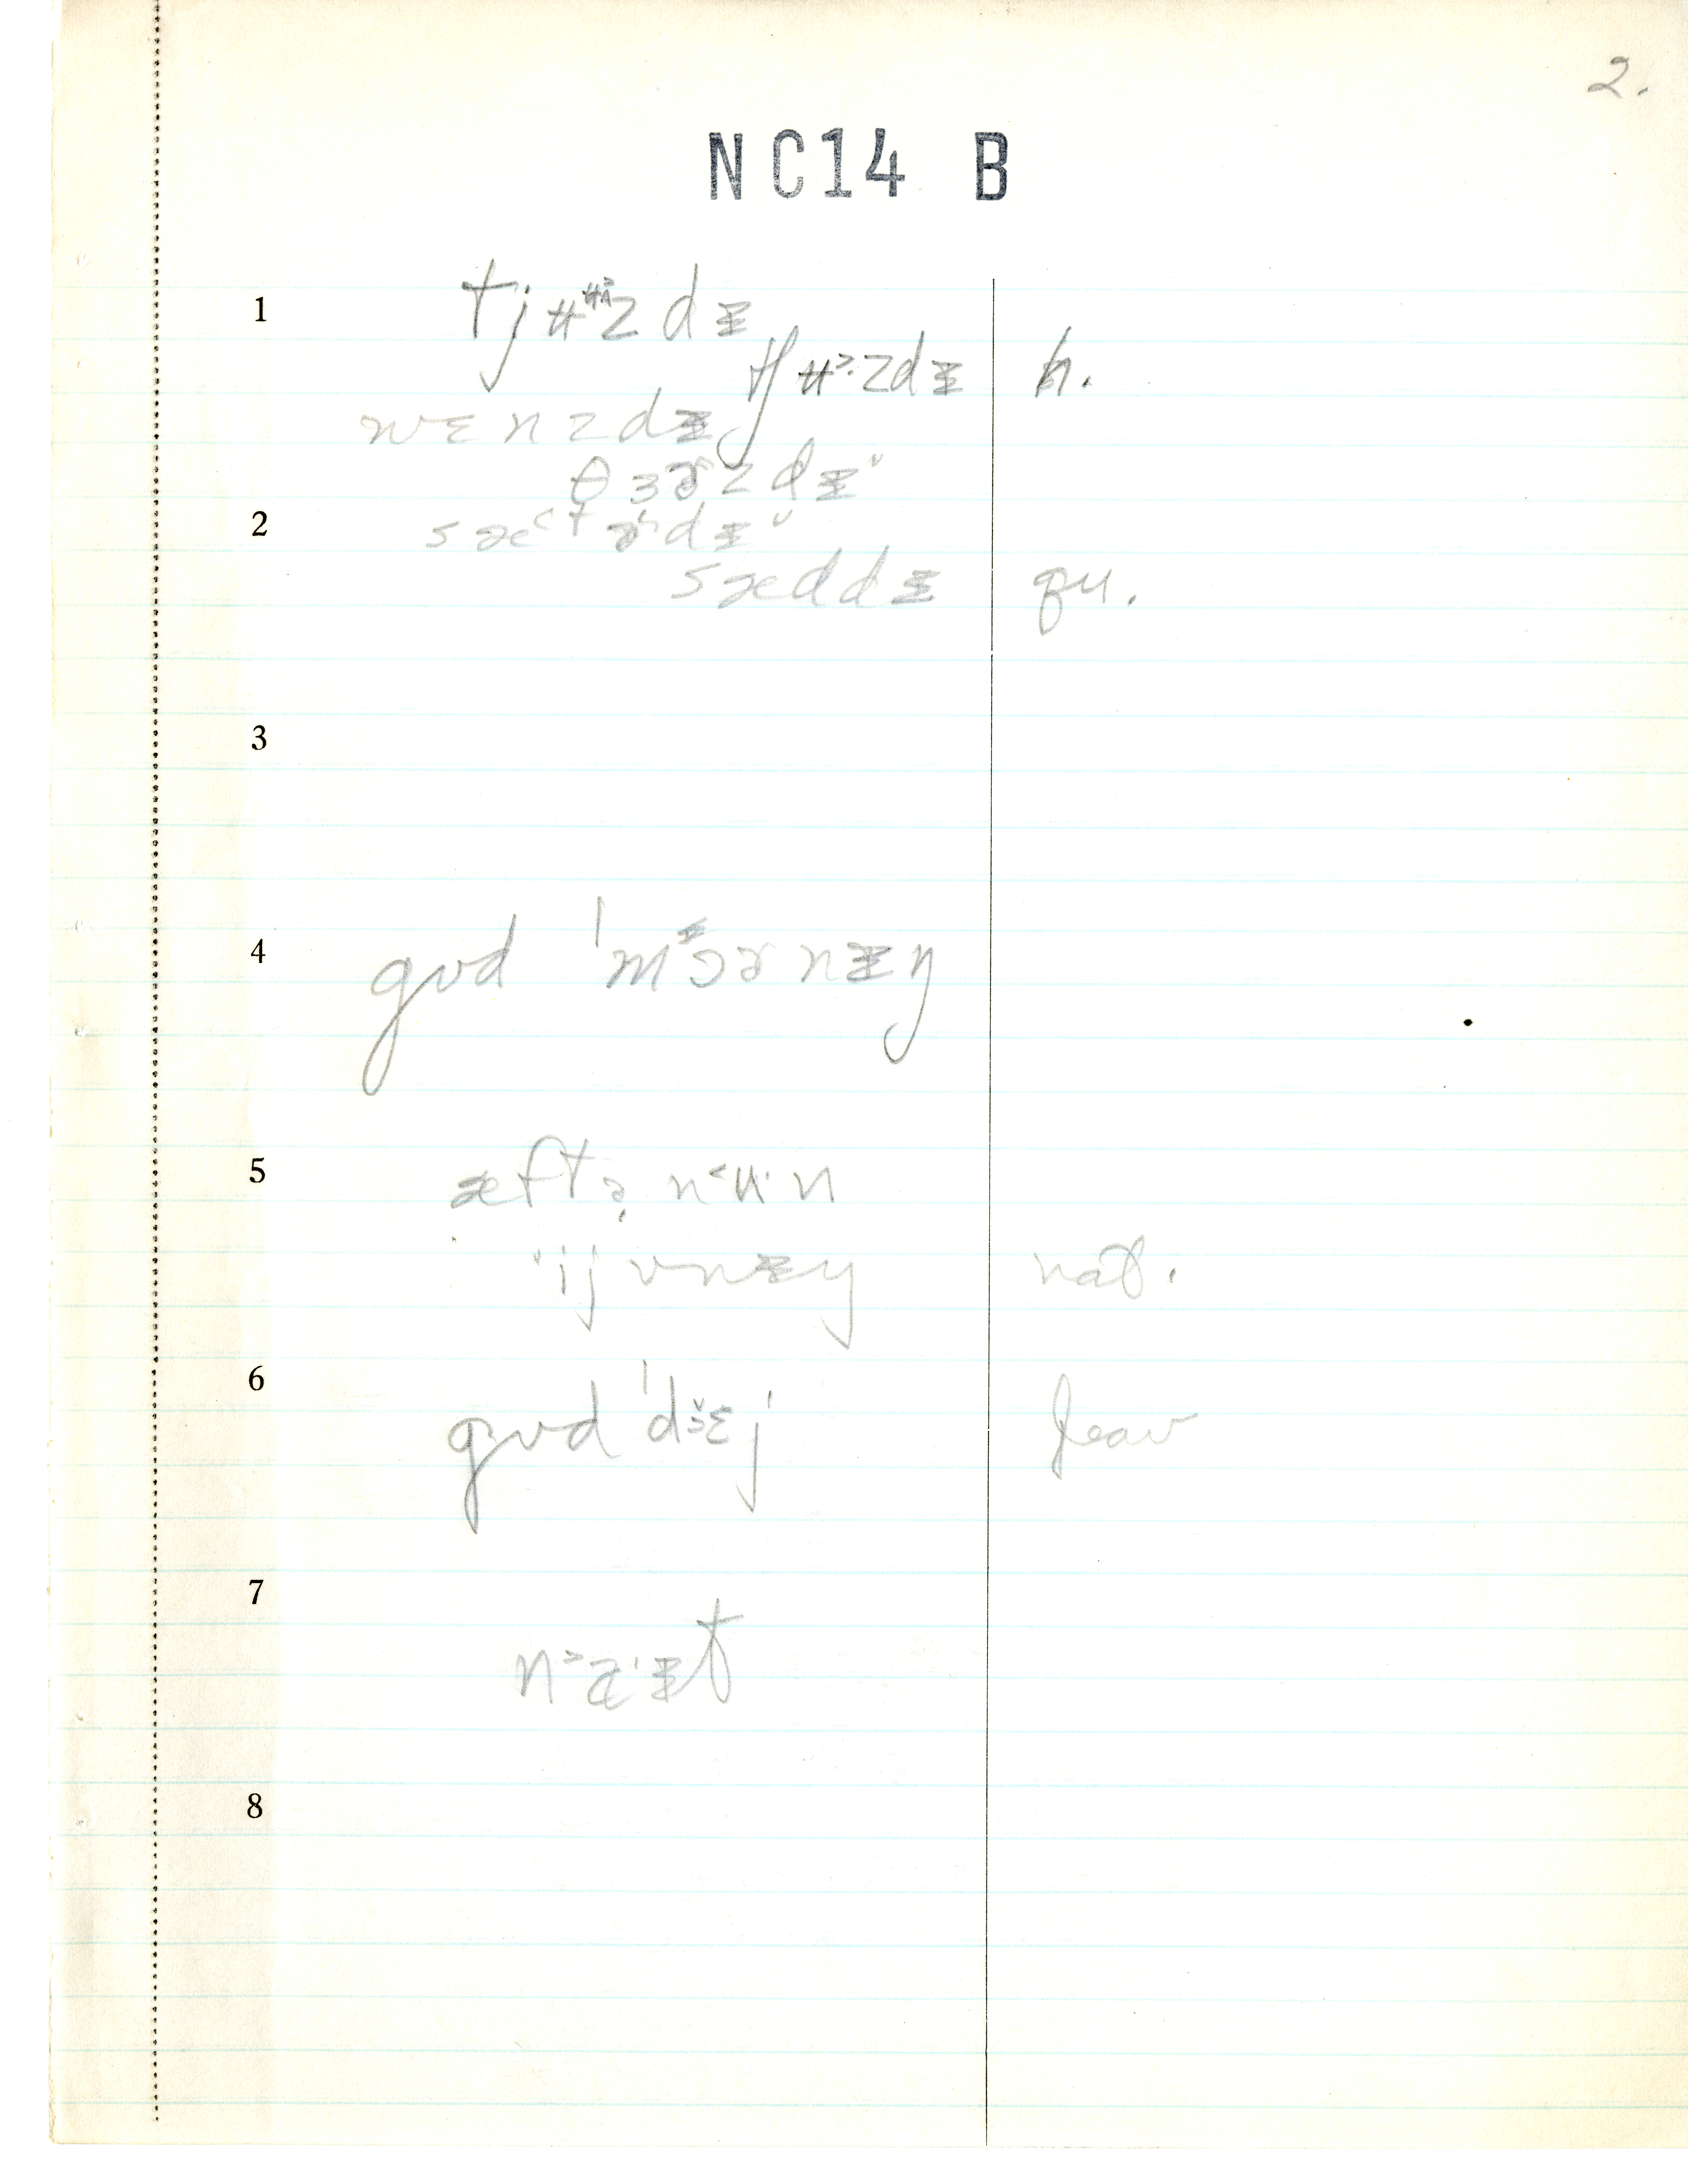 2.
NC14 B
1 tjʉʉ˃zdᵻ
tjʉ˃·zdᵻ h.
wɛnzdᵻ
θɜɚzdᵻ˅
2 sæ˂tɚdᵻ˅
sæddᵻ qu.
3
4 gʊd ˈmᵻɔɚnᵻŋ
5 æftə̣ n˂ʉ·n
ˈijvnᵻŋ nat.
6 gʊd ˈdɜ˅ɛj leav
7 n˃a·ᵻt
8